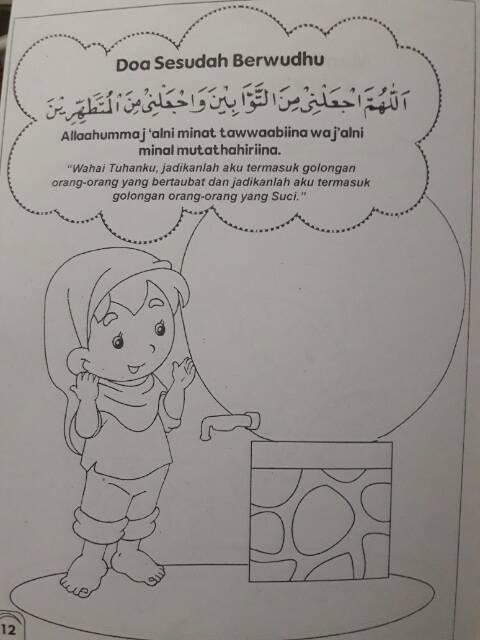 Doa Sesudah Berwudhu
اَللّٰهُمَّ اجْعَلْنِىْ مِنَ التَّوَّابِيْنَ وَاجْعَلْنِىْ مِنَ الْمُتَطَهِّرِيْنَ
Allaahummaj 'alni minat tawwaabiina waj'alni
minal mutathahiriina.
"Wahai Tuhanku, jadikanlah aku termasuk golongan
orang-orang yang bertaubat dan jadikanlah aku termasuk
golongan orang-orang yang Suci."
12